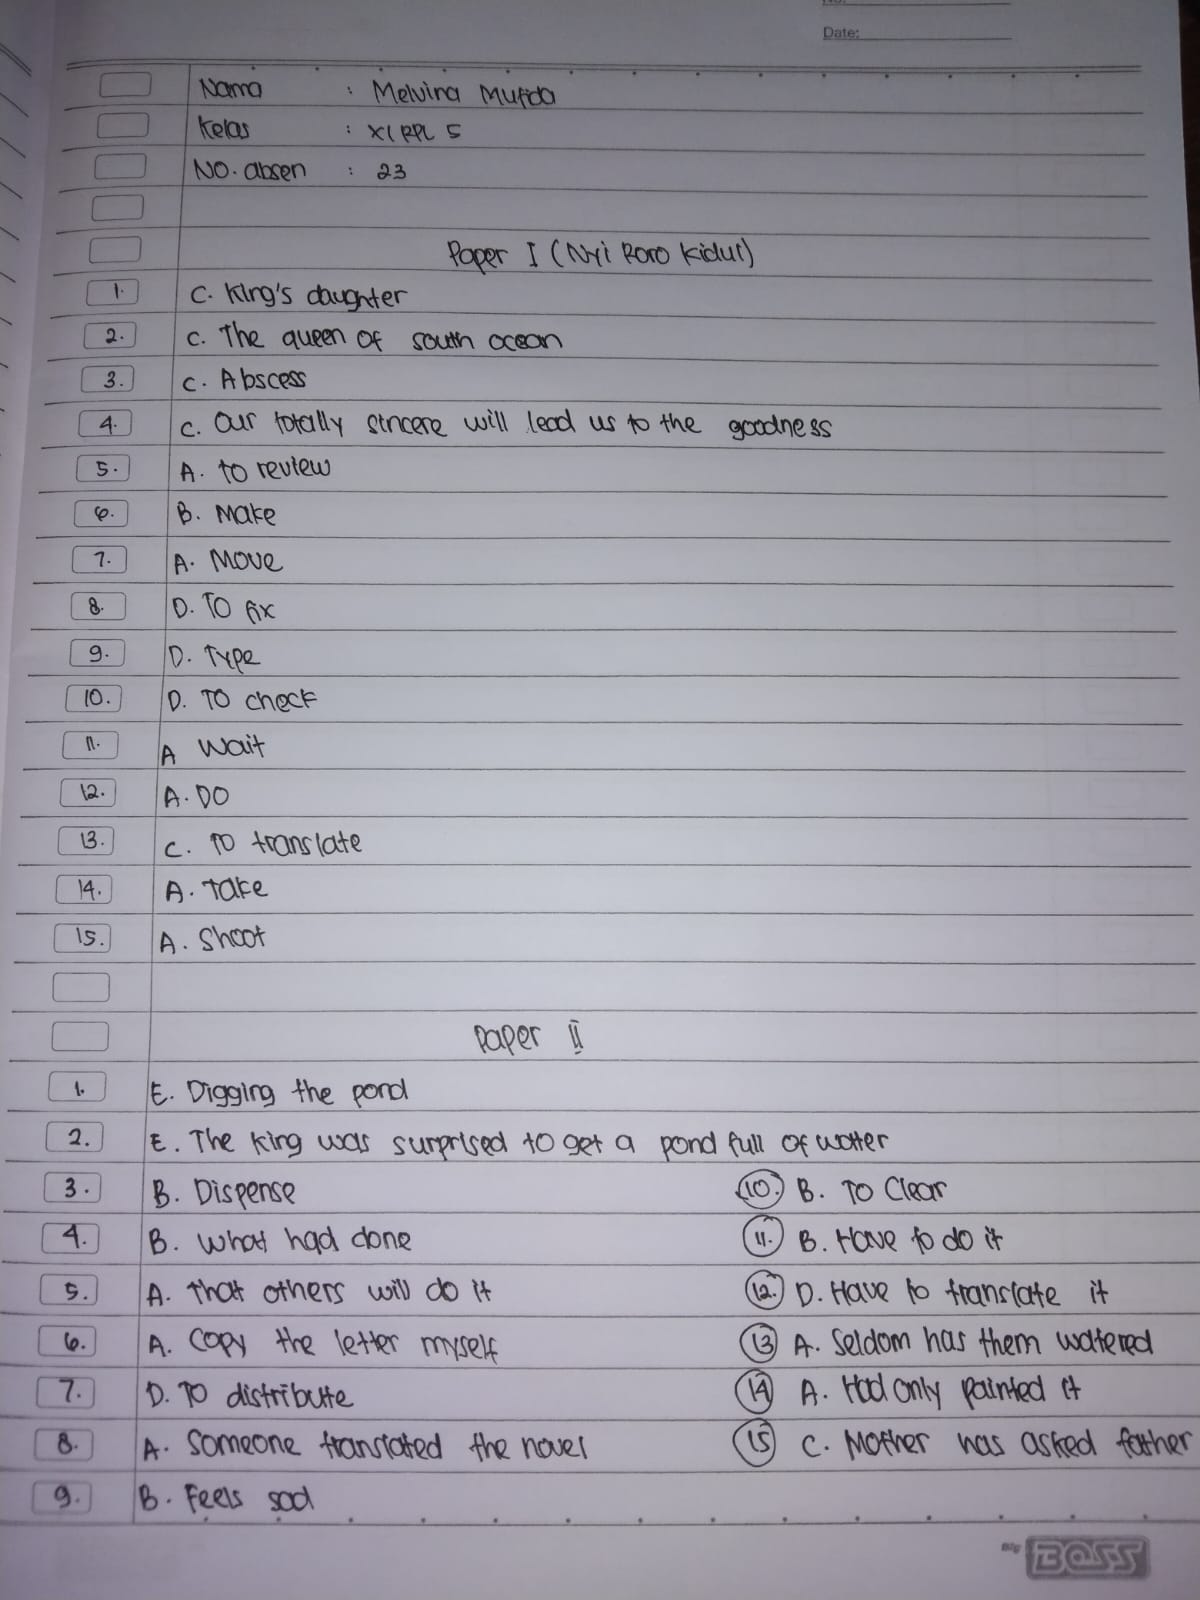 Date:
Nama : Melvina Mufda
Kelas : XI RPL 5
No. absen : 23
Paper I (Nyi Roro Kidul)
1. C. King's daughter
2. C. The queen of south ocean
3. C. Abscess
4. C. Our totally sincere will lead us to the goodness
5. A. to review
6. B. Make
7. A. Move
8. D. To fix
9. D. Type
10. D. To check
11. A Wait
12. A. DO
13. C. To translate
14. A. Take
15. A. Shoot
Paper II
1. E. Digging the pond
2. E. The king was surprised to get a pond full of watter
3. B. Dispense
4. B. What had done
5. A. that others will do it
6. A. Copy the letter myself
7. D. To distribute
8. A. Someone translated the novel
9. B. Feels sad
10. B. To Clear
11. B. Have to do it
12. D. Have to translate it
13 A. Seldom has them watered
14 A. Had only painted it
15 C. Mother has asked father
Big BOSS